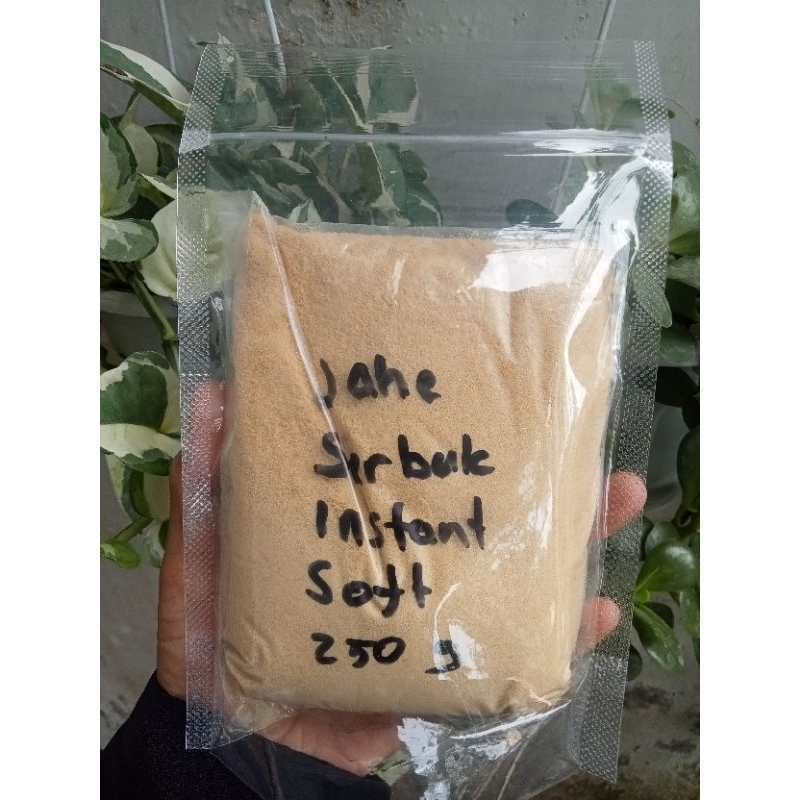 Jahe
Serbuk
Instant
Soft
250 g